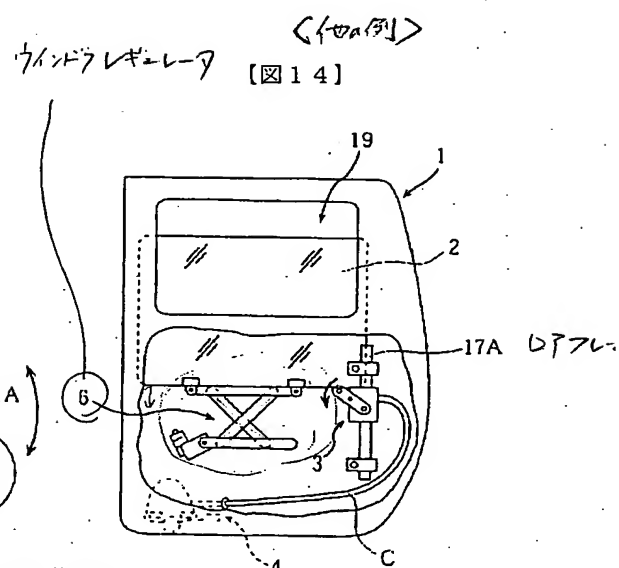 <他の例>
ウインドウレギュレータ
【図14】
19
1
2
17A ロアフレー
A
6
3
4
C